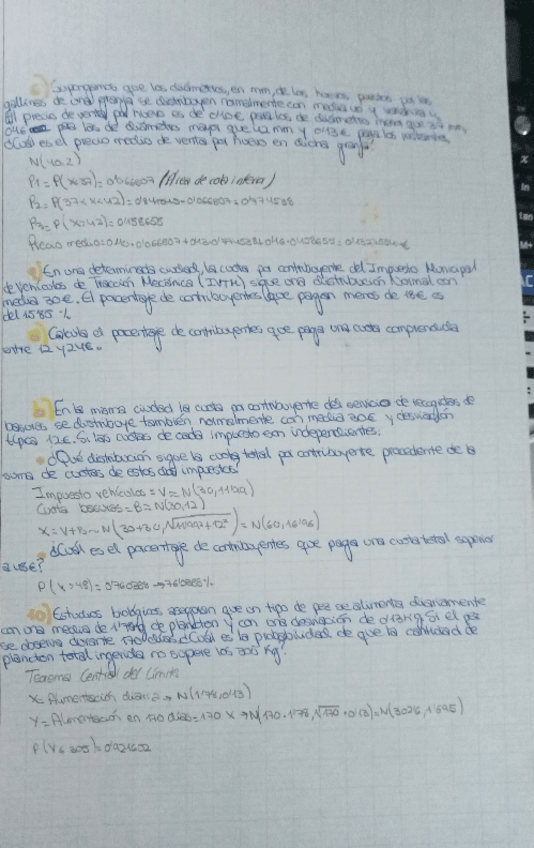 Supongamos que los diámetros, en mm, de los huevos puestos por las
gallinas de una granja se distribuyen normalmente con media 40 y varianza 4
El precio de venta por huevo es de 0'10€ para los de diámetro menor que 37 mm,
0'16 para los de diámetro mayor que 42 mm y 0'13€ para los restantes.
¿Cuál es el precio medio de venta por huevo en dicha granja?
N(40,2)
P1 = P(X<37) = 0'066807 (Área de cola inferior)
P2 = P(37<X<42) = 0'841345-0'066807 = 0'774538
P3 = P(X>42) = 0'158655
Precio medio = 0'10·0'066807 + 0'13·0'774538 + 0'16·0'158655 =
En una determinada ciudad, la cuota por contribuyente del Impuesto Municipal
de Vehículos de Tracción Mecánica (IVTM) sigue una distribución Normal con
media 30€. El porcentaje de contribuyentes que pagan menos de 18€ es
del 15'85 %
a) Calcula el porcentaje de contribuyentes que paga una cuota comprendida
entre 12 y 24€.
b) En la misma ciudad la cuota por contribuyente del servicio de recogidas de
basuras se distribuye también normalmente con media 30€ y desviación
típica 12€. Si las cuotas de cada impuesto son independientes.
• ¿Qué distribución sigue la cuota total por contribuyente procedente de la
suma de cuotas de estos dos impuestos?
Impuesto vehículos = V = N(30,
Cuota basuras = B = N(30,12)
X = V+B ~ = N(60,
• ¿Cuál es el porcentaje de contribuyentes que paga una cuota total superior
a 48€?
P(X>48) =
10) Estudios biológicos aseguran que un tipo de pez se alimenta diariamente
con una media de de plancton y con una desviación de Si el pez
se observa durante 170 días, ¿Cuál es la probabilidad de que la cantidad de
plancton total ingerida no supere los 305 Kg?
Teorema Central del Límite
X = Alimentación diaria → N(1'78, 0'13)
Y = Alimentación en 170 días = 170 X → N(170·1'78, √170·0'13) = N(302'6, 1'695)
P(Y≤305) =